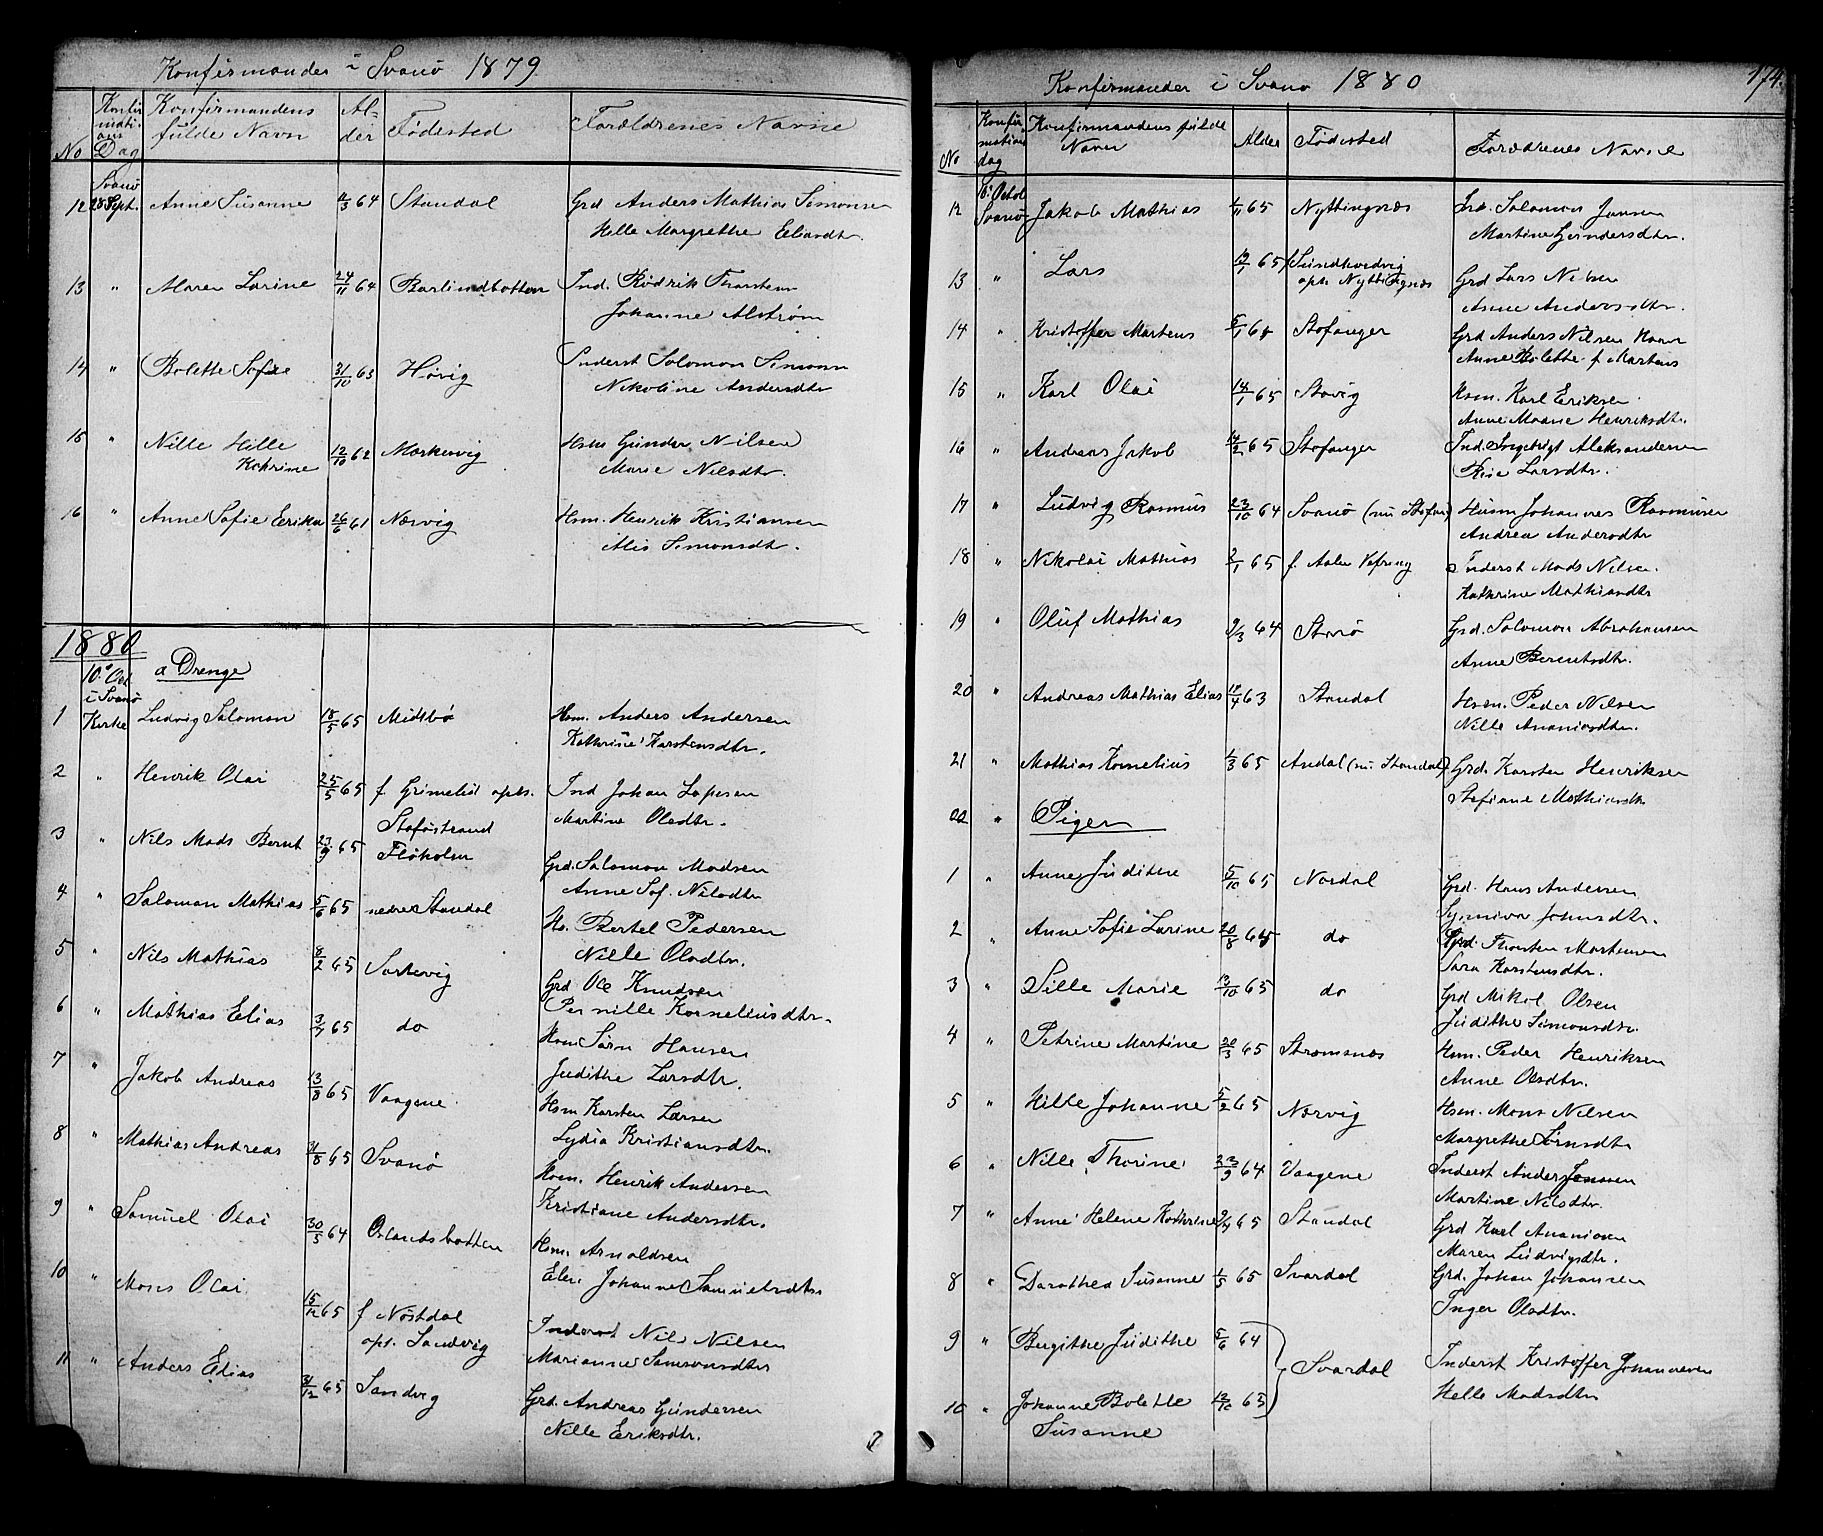 Konfirmander i Svanö 1879
No
Konfirmations Dag
Konfirmandens fulde Navn
Alder
Födested
Forældrenes Navne
Svanö
12 28 Sept. Anne Susanne 64 Standal Grd Anders Mathias Simonsen
Hille Margrethe Eliasdtr.
13 " Maren Larine 24/11 64 Barlindbotten Ind. Rödrik Thorsten
Johanne Alström
14 " Bolette Sofie 31/10 63 Hövig Inderst Salomon Simonsen
Nikoline Andersdtr
15 " Nille Hille 12/10 62 Markevig Hsm Gunder Nilsen
Kathrine Marie Nilsdtr.
16 " Anne Sofie Erika 26/6 61 Nærvig Hsm. Henrik Kristiansen
Alis Simonsdtr.
1880
10de Oct. a Drenge
i Svanö
1 Kirke Ludvig Salomon 18/5 65 Midtbö Hsm. Anders Andersen
Kathrine Karstensdtr.
2 " Henrik Olai 25/5 65 f. Grimelid opht. Ind Johan
Staföstrand Martine Olsdtr.
3 " Nils Mads Bernt 23/9 65 Flöholm Grd. Salomon Madsen
Anne Sof. Nilsdtr
4 " Salomon Mathias 5/6 65 nedre Standal Hs. Bertel Pedersen
Nille Olsdtr.
5 " Nils Mathias 8/2 65 Sortevig Grd Ole Knudsen
Pernille Korneliusdtr.
6 " Mathias Elias 65 do Hsm Sörn Hansen
Judithe Larsdtr.
7 " Jakob Andreas 13/8 65 Vaagene Hsm Karsten Larsen
Lydia Kristiansdtr.
8 " Mathias Andreas 31/8 65 Svanö Hsm. Henrik Andersen
Kristiane Andersdtr.
9 " Samuel Olai 30/5 64 Orlandsbotten Hsm. Arnoldsen
Elen Johanne Samuelsdtr
10 " Mons Olai 15/12 65 f Nöstdal Inderst Nils Nilsen
opt. Sandvig Marianne Samsonsdtr
11 " Anders Elias 31/12 65 Sandvig Grd. Andreas Gundersen
Nille Eriksdtr.
Konfirmander i Svanö 1880
174.
No
Konfirmations dag
Konfirmandens fulde Navn
Alder
Födested
Forældrenes Navne
10. Octob
12 Svanö Jakob Mathias 1/11 65 Nyttingnæs Grd. Salomon Jansen
Martine Gundersdtr.
13 " Lars 65 Sundhordvig Grd Lars Nilsen
opt. Nyttingnæs Anne Andersdtr.
14 " Kristoffer Martens Stafanger Grd Anders Nilsen Havn
Anne Bolette f. Martens
15 " Karl Olai 14/1 65 Stavig Hsm. Karl Eriksen
Anne Marie Henriksdtr.
16 " Andreas Jakob 14/2 65 Stafanger Ind. Ingebrigt Aleksandersen
Larsdtr.
17 " Ludvig Rasmus 23/10 64 Svanö (nu Stafan) Husm Johannes Rasmusen
Andrea Andersdtr
18 " Nikolai Mathias 2/1 65 f. Aalen Vefring Inderst Mads Nilsen.
Kathrine Mathiasdtr
19 " Oluf Mathias 9/3 64 Stavö Grd. Salomon Abrahamsen
Anne Berentsdtr.
20 " Andreas Mathias Elias 12/4 63 Standal Hsm. Peder Nilsen
Nille Ananiasdtr.
21 " Mathias Kornelius 1/3 65 Andal (nu Standal) Grd. Karsten Henriksen
Stefiane Mathiasdtr
22 " Piger
1 " Anne Judithe 5/10 65 Nordal Grd. Hans Andersen
Synniva Johnsdtr.
2 " Anne Sofie Larine 20/8 65 do Grd. Thorsten Mortensen
Sara Karstensdtr.
3 " Sille Marie 13/10 65 do Grd Mikal Olsen
Judithe Simonsdtr.
4 " Petrine Martine 20/3 65 Strømsnæs Hsm. Peder Henriksen
Anne Olsdtr.
5 " Hille Johanne 5/2 65 Nærvig Hsm. Mons Nilsen
Margrethe Sörnsdtr
6 " Nille Thorine 23/9 64 Vaagene Inderst Anders Jensen
Martine Nilsdtr.
7 " Anne Helene Kathrine 65 Standal Grd Karl Ananiasen
Maren Ludvigsdtr.
8 " Dorothea Susanne 1/5 65 Svardal Grd. Johan Johansen
Inger Olsdtr.
9 " Bergithe Judithe 5/6 64 Svardal Inderst Kristoffer Johannesen
Helle Madsdtr
10 " Johanne Bolette 12/12 65
Susanne